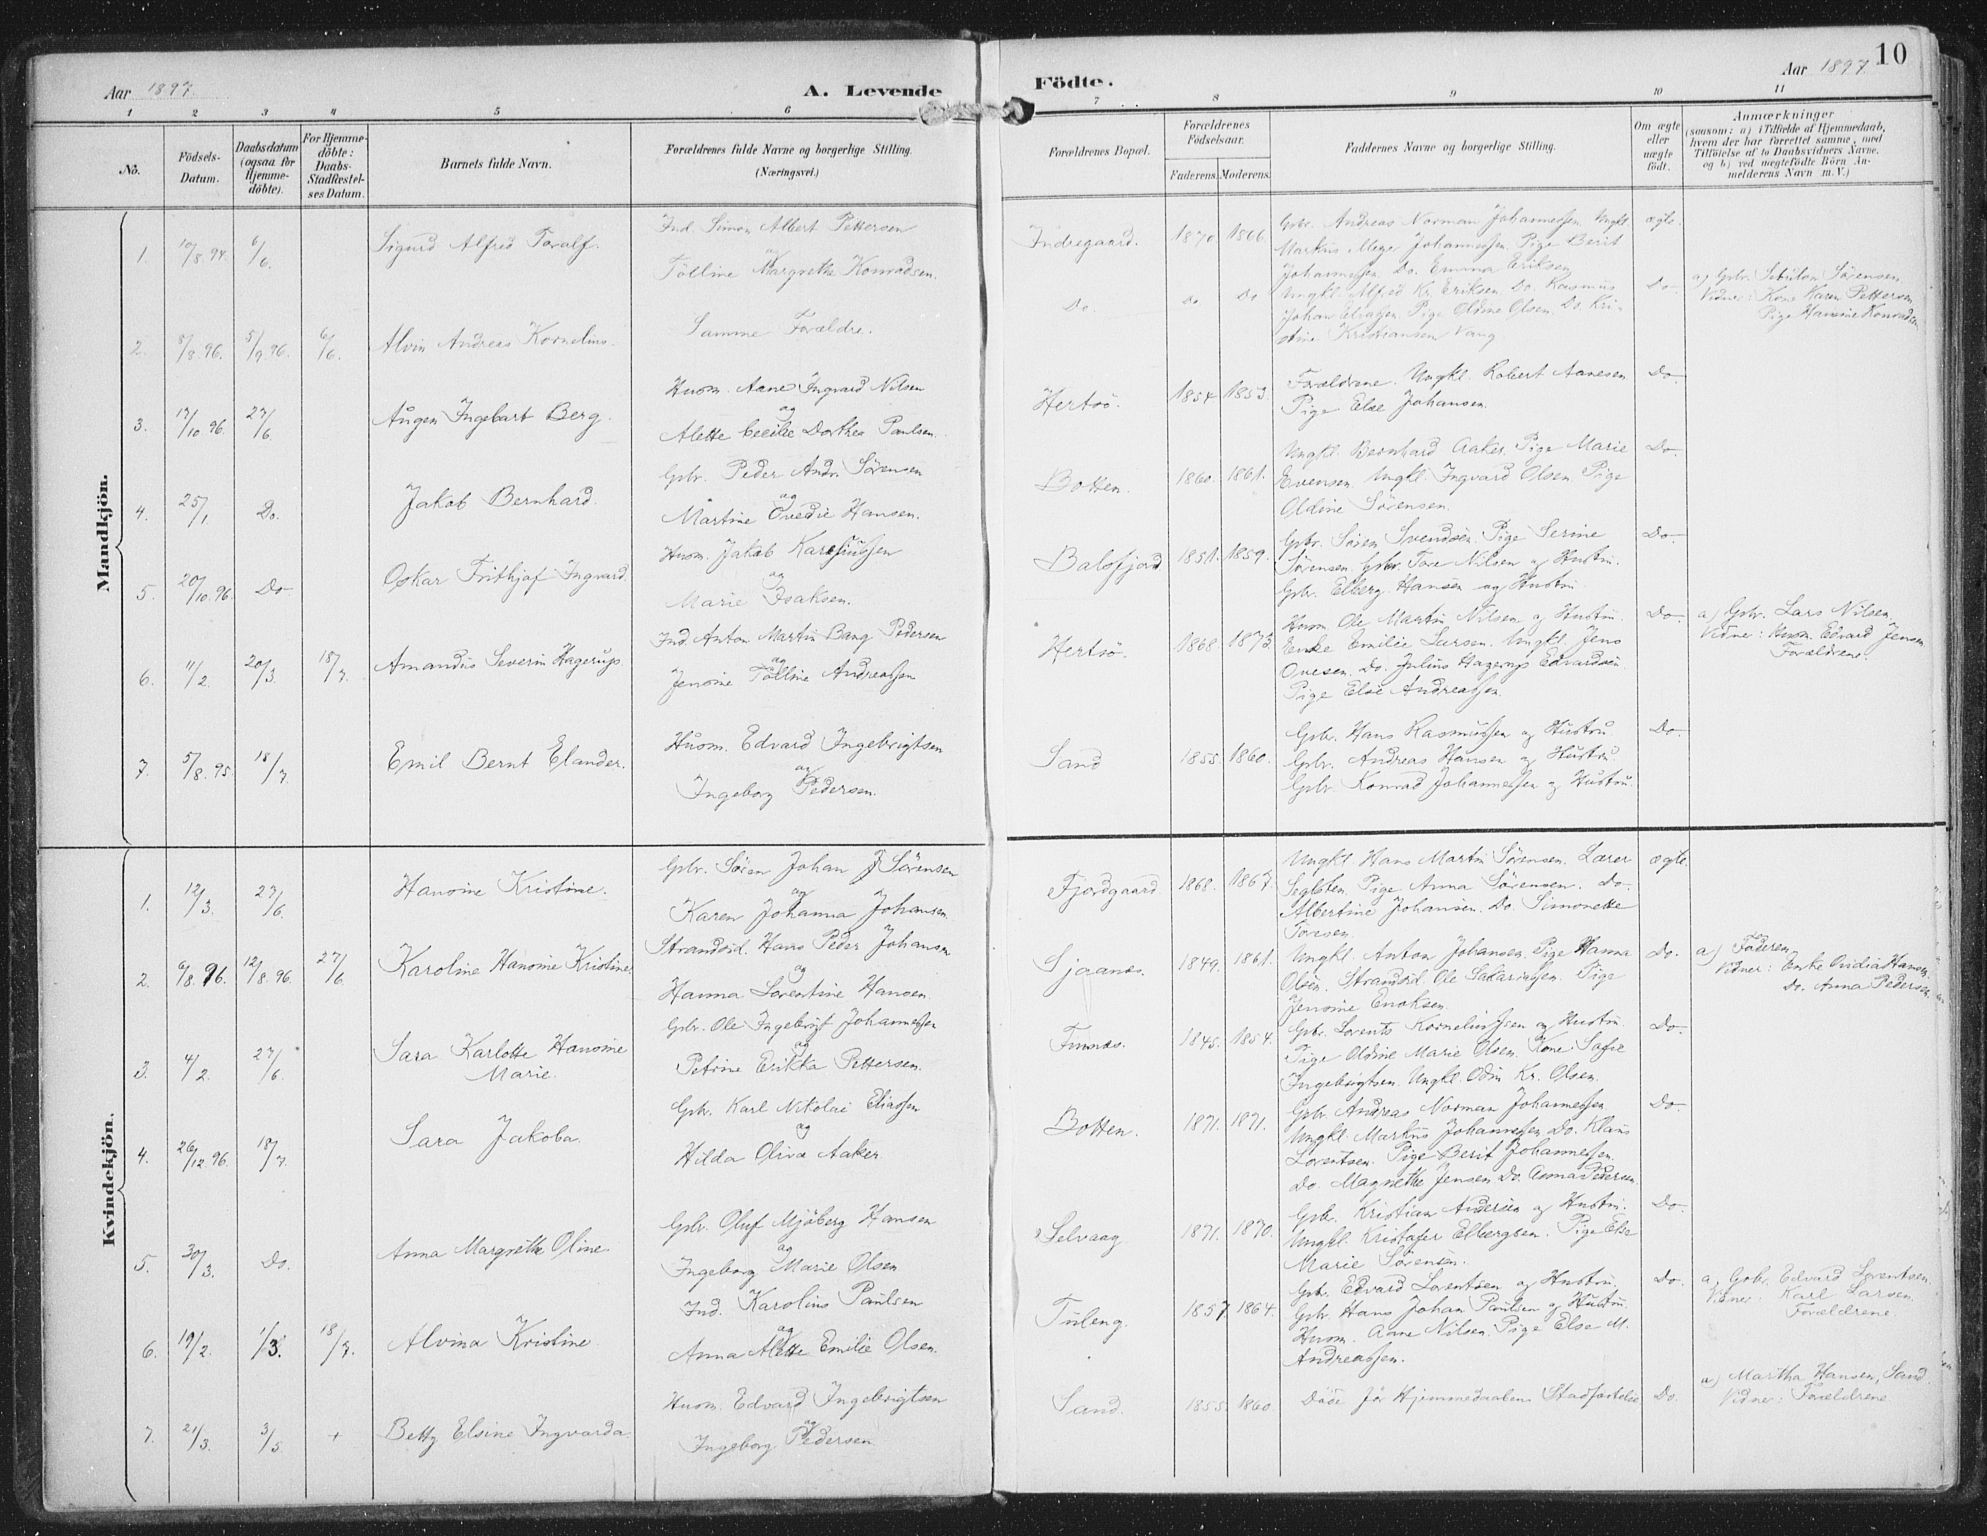 Aar 1897.
A. Levende
Födte.
Aar 1897.
10
1 2 3 4 5 6 7 8 9 10 11
No.
Födsels-Datum.
Daabsdatum (ogsaa for Hjemme-döbte).
For Hjemme-döbte: Daabs-Stadfæstel-ses Datum.
Barnets fulde Navn.
Forældrenes fulde Navne og borgerlige Stilling.
(Næringsvei.)
Forældrenes Bopæl.
Forældrenes Födselsaar.
Faderens. Moderens.
Faddernes Navne og borgerlige Stilling.
Om ægte eller uægte födt.
Anmærkninger
(saasom: a) i Tilfælde af Hjemmedaab, hvem der har forrettet samme, med Tilföielse af to Daabsvidners Navne, og b) ved uægtefödte Börn An-melderens Navn m. V.)
Mandkjön.
1. 10/8.94. 6/6. Sigurd Alfred Toralf.
Ind. Simon Albert Pettersen
og
Tölline Margrethe Konradsen.
Indregaard. 1870. 1866.
Gbr. Andreas Norman Johannessen. Ungkl.
Markus Meyer Johannessen. Pige Berit
Johannessen. Do. Emma Eriksen
ægte.
2. 8/8.96. 5/9.96. 6/6. Alvin Andreas Kornelius.
Samme Forældre.
Do. Do Do
Ungkl. Alfred Kr. Eriksen. Do. Rasmus
Johan Eliassen. Pige Oldine Olsen. Do. Kri-
stine Kristiansen Vang
Do.
a) Gbr. Sørensen
Vidner: Kone Karen Pettersen
Pige Hansine Konradsen
3. 17/10.96. 27/6. Augen Ingebart Berg.
Husm. Aane Ingvard Nilsen
og
Alette Cecilie Dorthea Paulsen.
Hertsö. 1854. 1853.
Forældrene. Ungkl. Robert Aanesen
Pige Else Johansen.
Do.
4. 25/1. Do. Jakob Bernhard.
Gbr. Peder Andr. Sørensen
og
Martine Ovedie Hansen.
Botten. 1860. 1861.
Ungkl. Bernhard Aaker. Pige Marie
Evensen. Ungkl. Ingvard Olsen. Pige
Oldine Sørensen.
Do.
5. 20/10.96. Do Oskar Frithjof Ingvard.
Husm. Jakob Kareliussen
og
Marie Isaksen.
Balsfjord 1851. 1859.
Gbr. Sören Svendsen. Pige Serine
Sørensen. Gbr. Tore Nilsen og Hustru.
Gbr. Elberg Hansen og Hustru
Do.
6. 11/2. 20/3. 18/7. Amandus Severin Hagerup.
Ind. Anton Martin Bang Pedersen
og
Jensine Tölline Andreassen
Hertsö. 1868. 1873.
Husm. Ole Martin Nilsen og Hustru.
Enke Emilie Larsen. Ungkl. Jens
Ovesen. Do. Julius Hagerup Edvardsen.
Pige Else Andreassen.
Do.
a) Gbr. Lars Nilsen.
Vidner: Husm. Edvard Jensen
Forældrene.
7. 5/8.95. 18/7. Emil Bernt Elander.
Husm. Edvard Ingebrigtsen
og
Ingeborg Pedersen.
Sand 1855. 1860.
Gbr. Hans Rasmussen og Hustru
Gbr. Andreas Hansen og Hustru
Gbr. Konrad Johannessen og Hustru.
Do.
Kvindekjön.
1. 12/3. 27/6. Hansine Kristine.
Gbr. Sören Johan J Sörensen
og
Karen Johanna Johansen.
Fjordgaard. 1868. 1867.
Ungkl. Hans Martin Sørensen. Lærer
Seglsten. Pige Anna Sørensen. Do.
Albertine Johansen. Do. Simonette
Toresen.
ægte.
2. 6/8.96. 12/8.96. 27/6. Karoline Hansine Kristine
Strandsid. Hans Peder Johansen
og
Hanna Lorentine Hansen.
Sjaanes. 1849. 1861.
Ungkl. Anton Johansen. Pige Hanna
Olsen. Strandsid. Ole Sakariassen. Pige
Jensine Enoksen.
Do.
a) Faderen
Vidner: Enke Ovidia Hansen
Do. Anna Pedersen.
3. 4/2. 27/6. Sara Karlotte Hansine
Marie.
Gbr. Ole Ingebrigt Johannessen
og
Petrine Erikka Pettersen.
Finnæs. 1845. 1854.
Gbr. Lorents Korneliussen og Hustru.
Pige Oldine Marie Olsen. Kone Sofie
Ingebrigtsen. Ungkl. Odin Kr. Olsen.
Do.
4. 26/12.96. 18/7. Sara Jakoba.
Gbr. Karl Nikolai Eliassen
og
Hilda Oliva Aaker.
Botten. 1871. 1871.
Gbr. Andreas Norman Johannessen
Ungkl. Markus Johannessen. Do. Klaus
Lorentsen. Pige Berit Johannessen.
Do. Magnethe Jensen Do. Anna Pedersen
Do.
5. 30/3. Do. Anna Margrethe Oline.
Gbr. Oluf Mjöberg Hansen
og
Ingeborg Marie Olsen
Selvaag 1871. 1870.
Gbr. Kristian Andersen og Hustru.
Ungkl. Kristofer Elbergsen. Pige Else
Marie Sørensen.
Do.
6. 19/2. 1/3. 18/7. Alvina Kristine.
Ind. Karolius Paulsen
og
Anna Alette Emilie Olsen.
Tuleng. 1857. 1864.
Gbr. Edvard Lorentsen og Hustru.
Gbr. Hans Johan Paulsen og Hustru.
Husm. Aane Nilsen. Pige Else M.
Andreassen.
Do.
a. Gbr. Edvard Lorentsen.
Vidner: Karl Larsen.
Forældrene
7. 21/3. 3/5. + Betty Elsine Ingvarda
Husm. Edvard Ingebrigtsen
og
Ingeborg Pedersen
Sand. 1855. 1860
Döde för Hjemmedaabens Stadfæstelse
Do.
a) Martha Hansen, Sand
Vidner: Forældrene